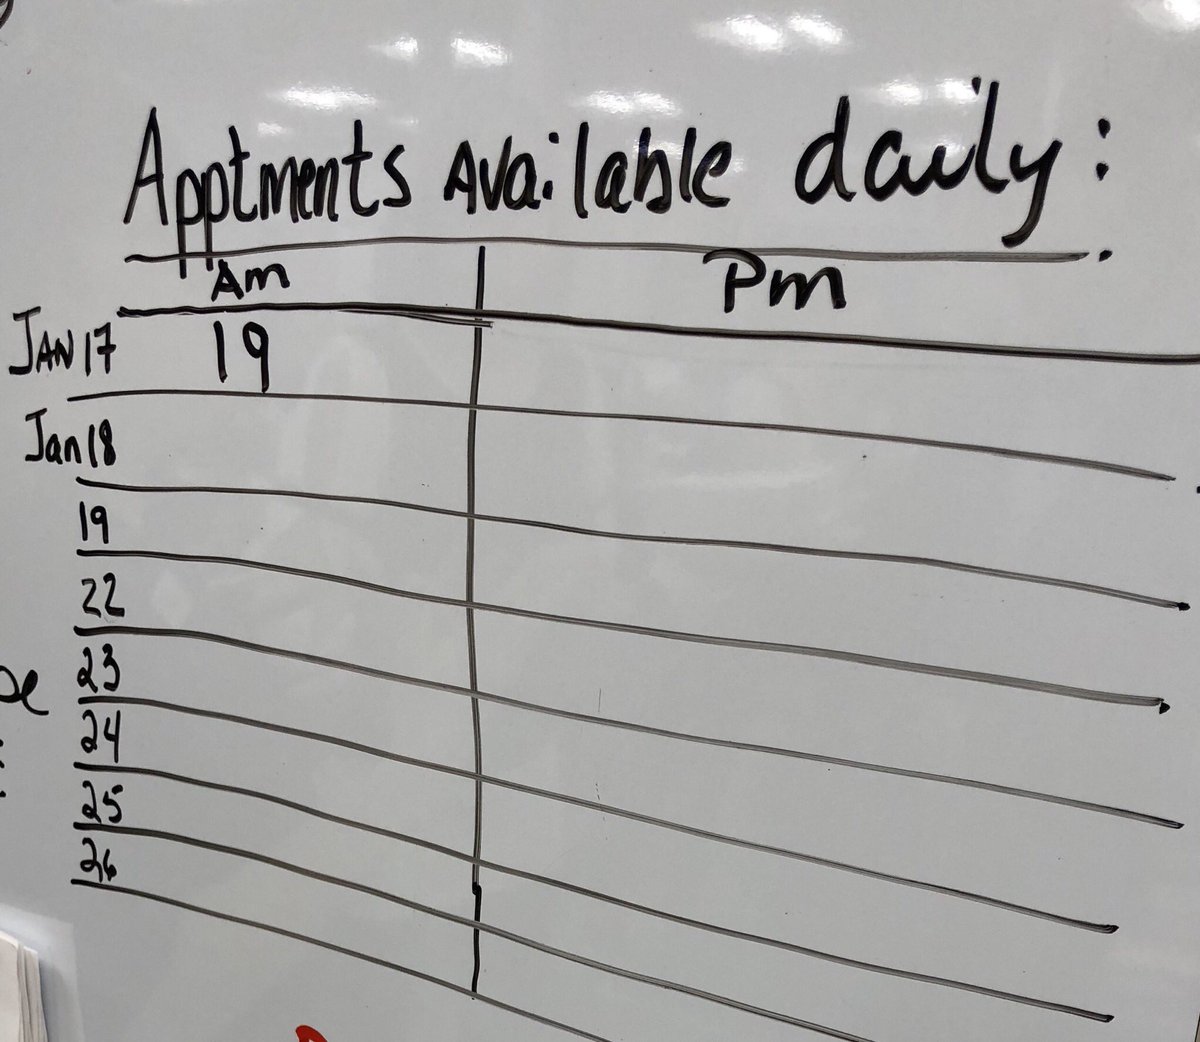 Apptments Available daily:
Am Pm
JAN 17 19
Jan 18
19
22
23
24
25
26